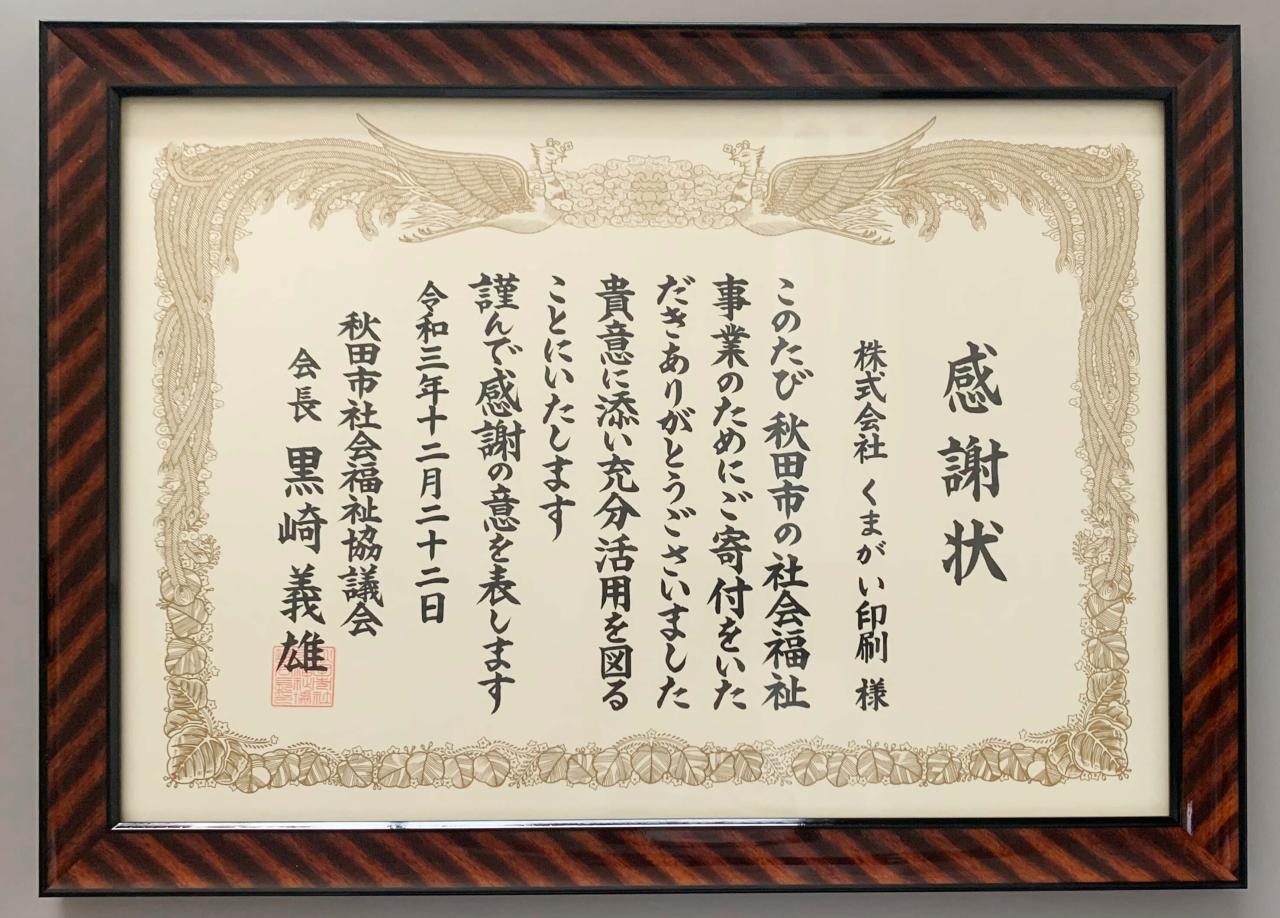 感謝状
株式会社 くまがい印刷 様
このたび秋田市の社会福祉
事業のためにご寄付をいた
だきありがとうございました
貴意に添い充分活用を図る
ことにいたします
謹んで感謝の意を表します
令和三年十二月二十二日
秋田市社会福祉協議会
会長 黒崎義雄